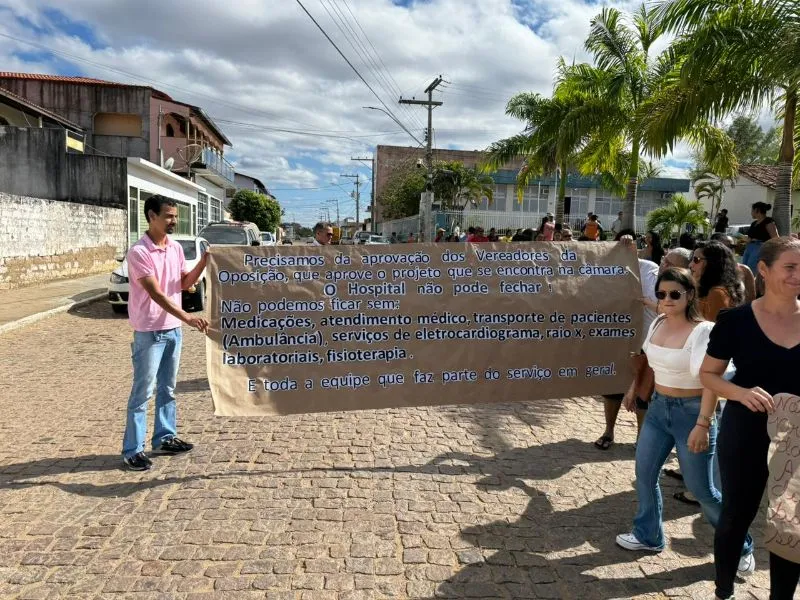 Precisamos da aprovação dos Vereadores da
Oposição, que aprove o projeto que se encontra na câmara.
O Hospital não pode fechar !
Não podemos ficar sem:
Medicações, atendimento médico, transporte de pacientes
(Ambulância), serviços de eletrocardiograma, raio x, exames
laboratoriais, fisioterapia .
E toda a equipe que faz parte do serviço em geral.